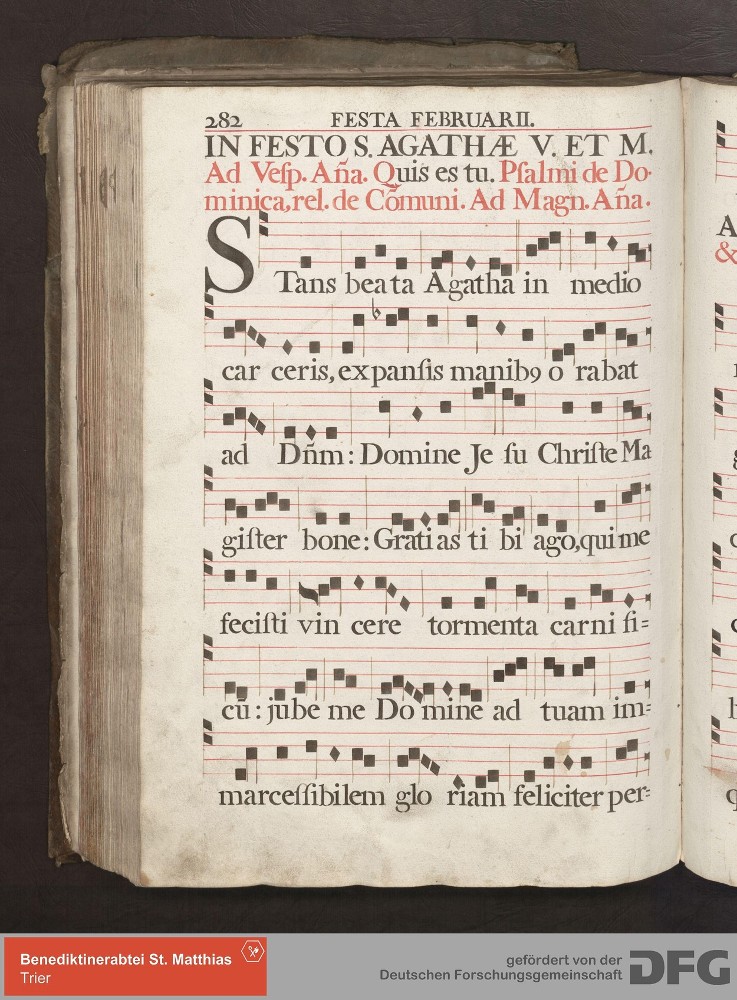 282 FESTA FEBRUARII.
IN FESTO S. AGATHÆ V. ET M.
Ad Veſp. Aña. Quis es tu. Pſalmi de Do-
minica, rel. de Cõmuni. Ad Magn. Aña.
STans beata Agatha in medio
car ceris, expanſis manibꝯ o rabat
ad Dñm: Domine Je ſu Chriſte Ma
giſter bone: Grati as ti bi ago, qui me
feciſti vin cere tormenta carni fi=
cũ: jube me Do mine ad tuam im=
marceſſibilem glo riam feliciter per=
A
&
Benediktinerabtei St. Matthias
Trier
gefördert von der
Deutschen Forschungsgemeinschaft
DFG